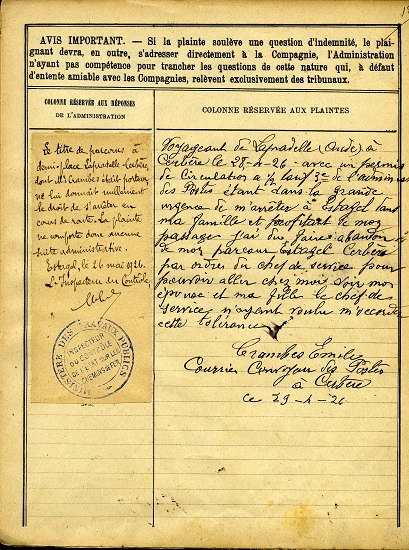 AVIS IMPORTANT. — Si la plainte soulève une question d'indemnité, le plai-
gnant devra, en outre, s'adresser directement à la Compagnie, l'Administration
n'ayant pas compétence pour trancher les questions de cette nature qui, à défaut
d'entente amiable avec les Compagnies, relèvent exclusivement des tribunaux.
COLONNE RÉSERVÉE AUX RÉPONSES
DE L'ADMINISTRATION
Le titre de parcours à
demi-place Lapradelle-Cerbère,
dont M. Crambes était porteur
ne lui donnait nullement
le droit de s'arrêter en
cours de route. La plainte
ne comporte donc aucune
suite administrative.
Estagel, le 26 mai 1926.
L'Inspecteur du Contrôle,
MINISTÈRE DES TRAVAUX PUBLICS
INSPECTEUR
DU CONTRÔLE
DE L'ÉTAT SUR LES
CHEMINS DE FER
COLONNE RÉSERVÉE AUX PLAINTES
Voyageant de Lapradelle (Aude) à
Cerbère le 28-4-26 - avec un permis
de Circulation a ½ tarif 3e de l'adminis
des Postes étant dans la grande
urgence de m'arrêter à Estagel
ma famille et profitant de mon
passage j'ai du faire abandon
de mon parcour Estagel Cerbère
par ordres du chef de service pour
pouvoir aller chez moi voir mon
épouse et ma fille le chef de
service n'ayant voulu m'accorder
cette tolérance
Crambes Emile
Courrier Convoyeur des Postes
à Cerbère
ce 29-4-26